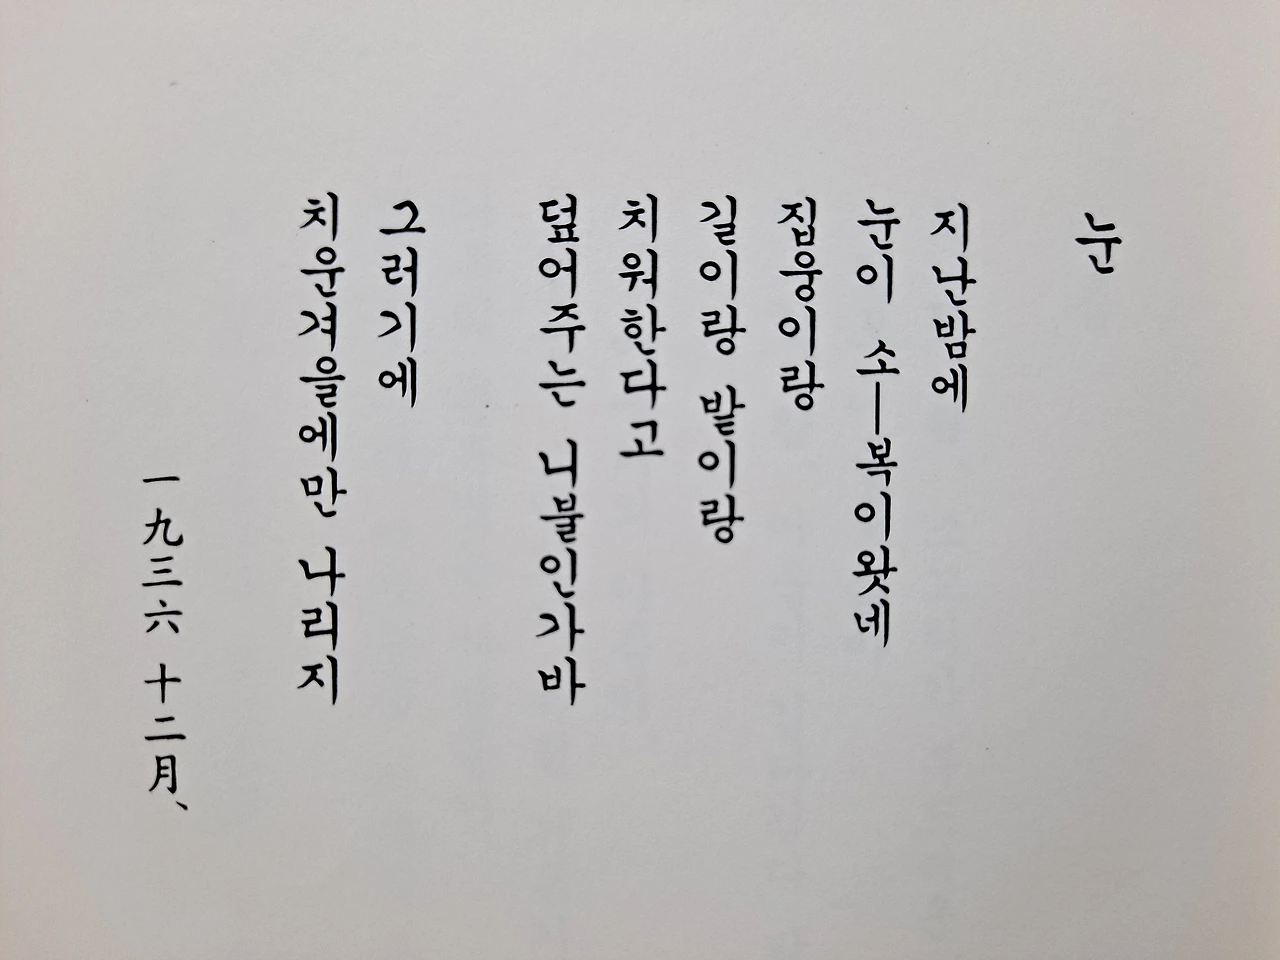 눈
지난밤에
눈이 소―복이왓네
집웅이랑
길이랑 밭이랑
치워한다고
덮어주는 니불인가바
그러기에
치운겨을에만 나리지
一九三六 十二月、